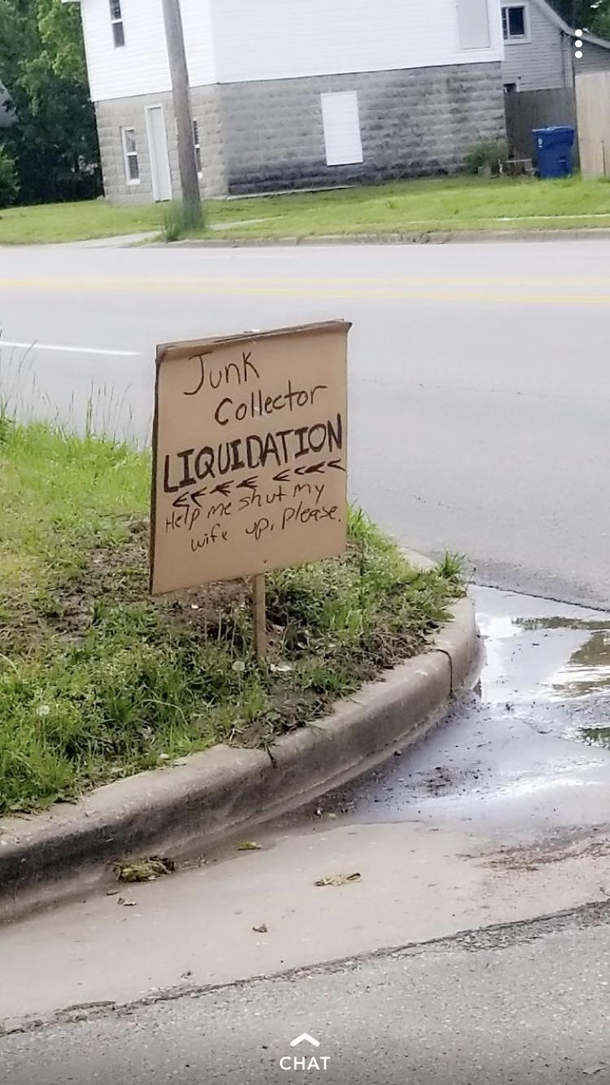 Junk
Collector
LIQUIDATION
<<<< <<<<
Help me shut my
wife up, please.
CHAT